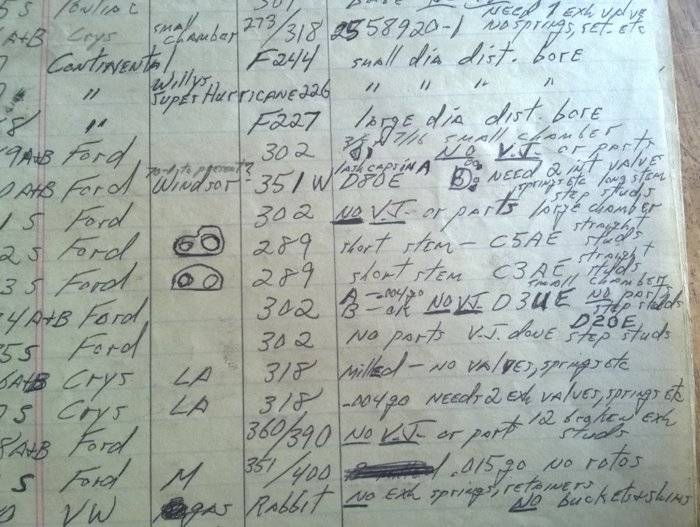 5 S Pontiac 301 NEED 1 Exh valve
A+B Crys small chamber 273/318 2558920-1 NO springs, ret. etc
Continental F244 small dia dist. bore
" Willys, Super Hurricane 226 " " " "
8/ " F227 large dia dist. bore
9 A+B Ford 302 7/16 small chamber NO V.J. or parts
0 A+B Ford Windsor - 351W D80E lash caps in A B: NEED 2 int valve springs etc long stem step studs
1 S Ford 302 NO V.J. or parts large chamber straight studs
2 S Ford 289 short stem - C5AE straight studs
3 S Ford 289 short stem C3AE small chamber
4 A+B Ford 302 A - .004 go B - ok NO V.J. D3UE NO parts step studs D20E
5 S Ford 302 No parts V.J. done step studs
6 A+B Crys LA 318 milled - no valves, springs etc
S Crys LA 318 .004 go needs 2 exh valves, springs etc
8 A+B Ford 360/390 NO V.J. or parts 12 broken exh studs
S Ford M 351/400 .015 go no rotos
VW gas Rabbit NO Exh springs, retainers NO buckets + shims